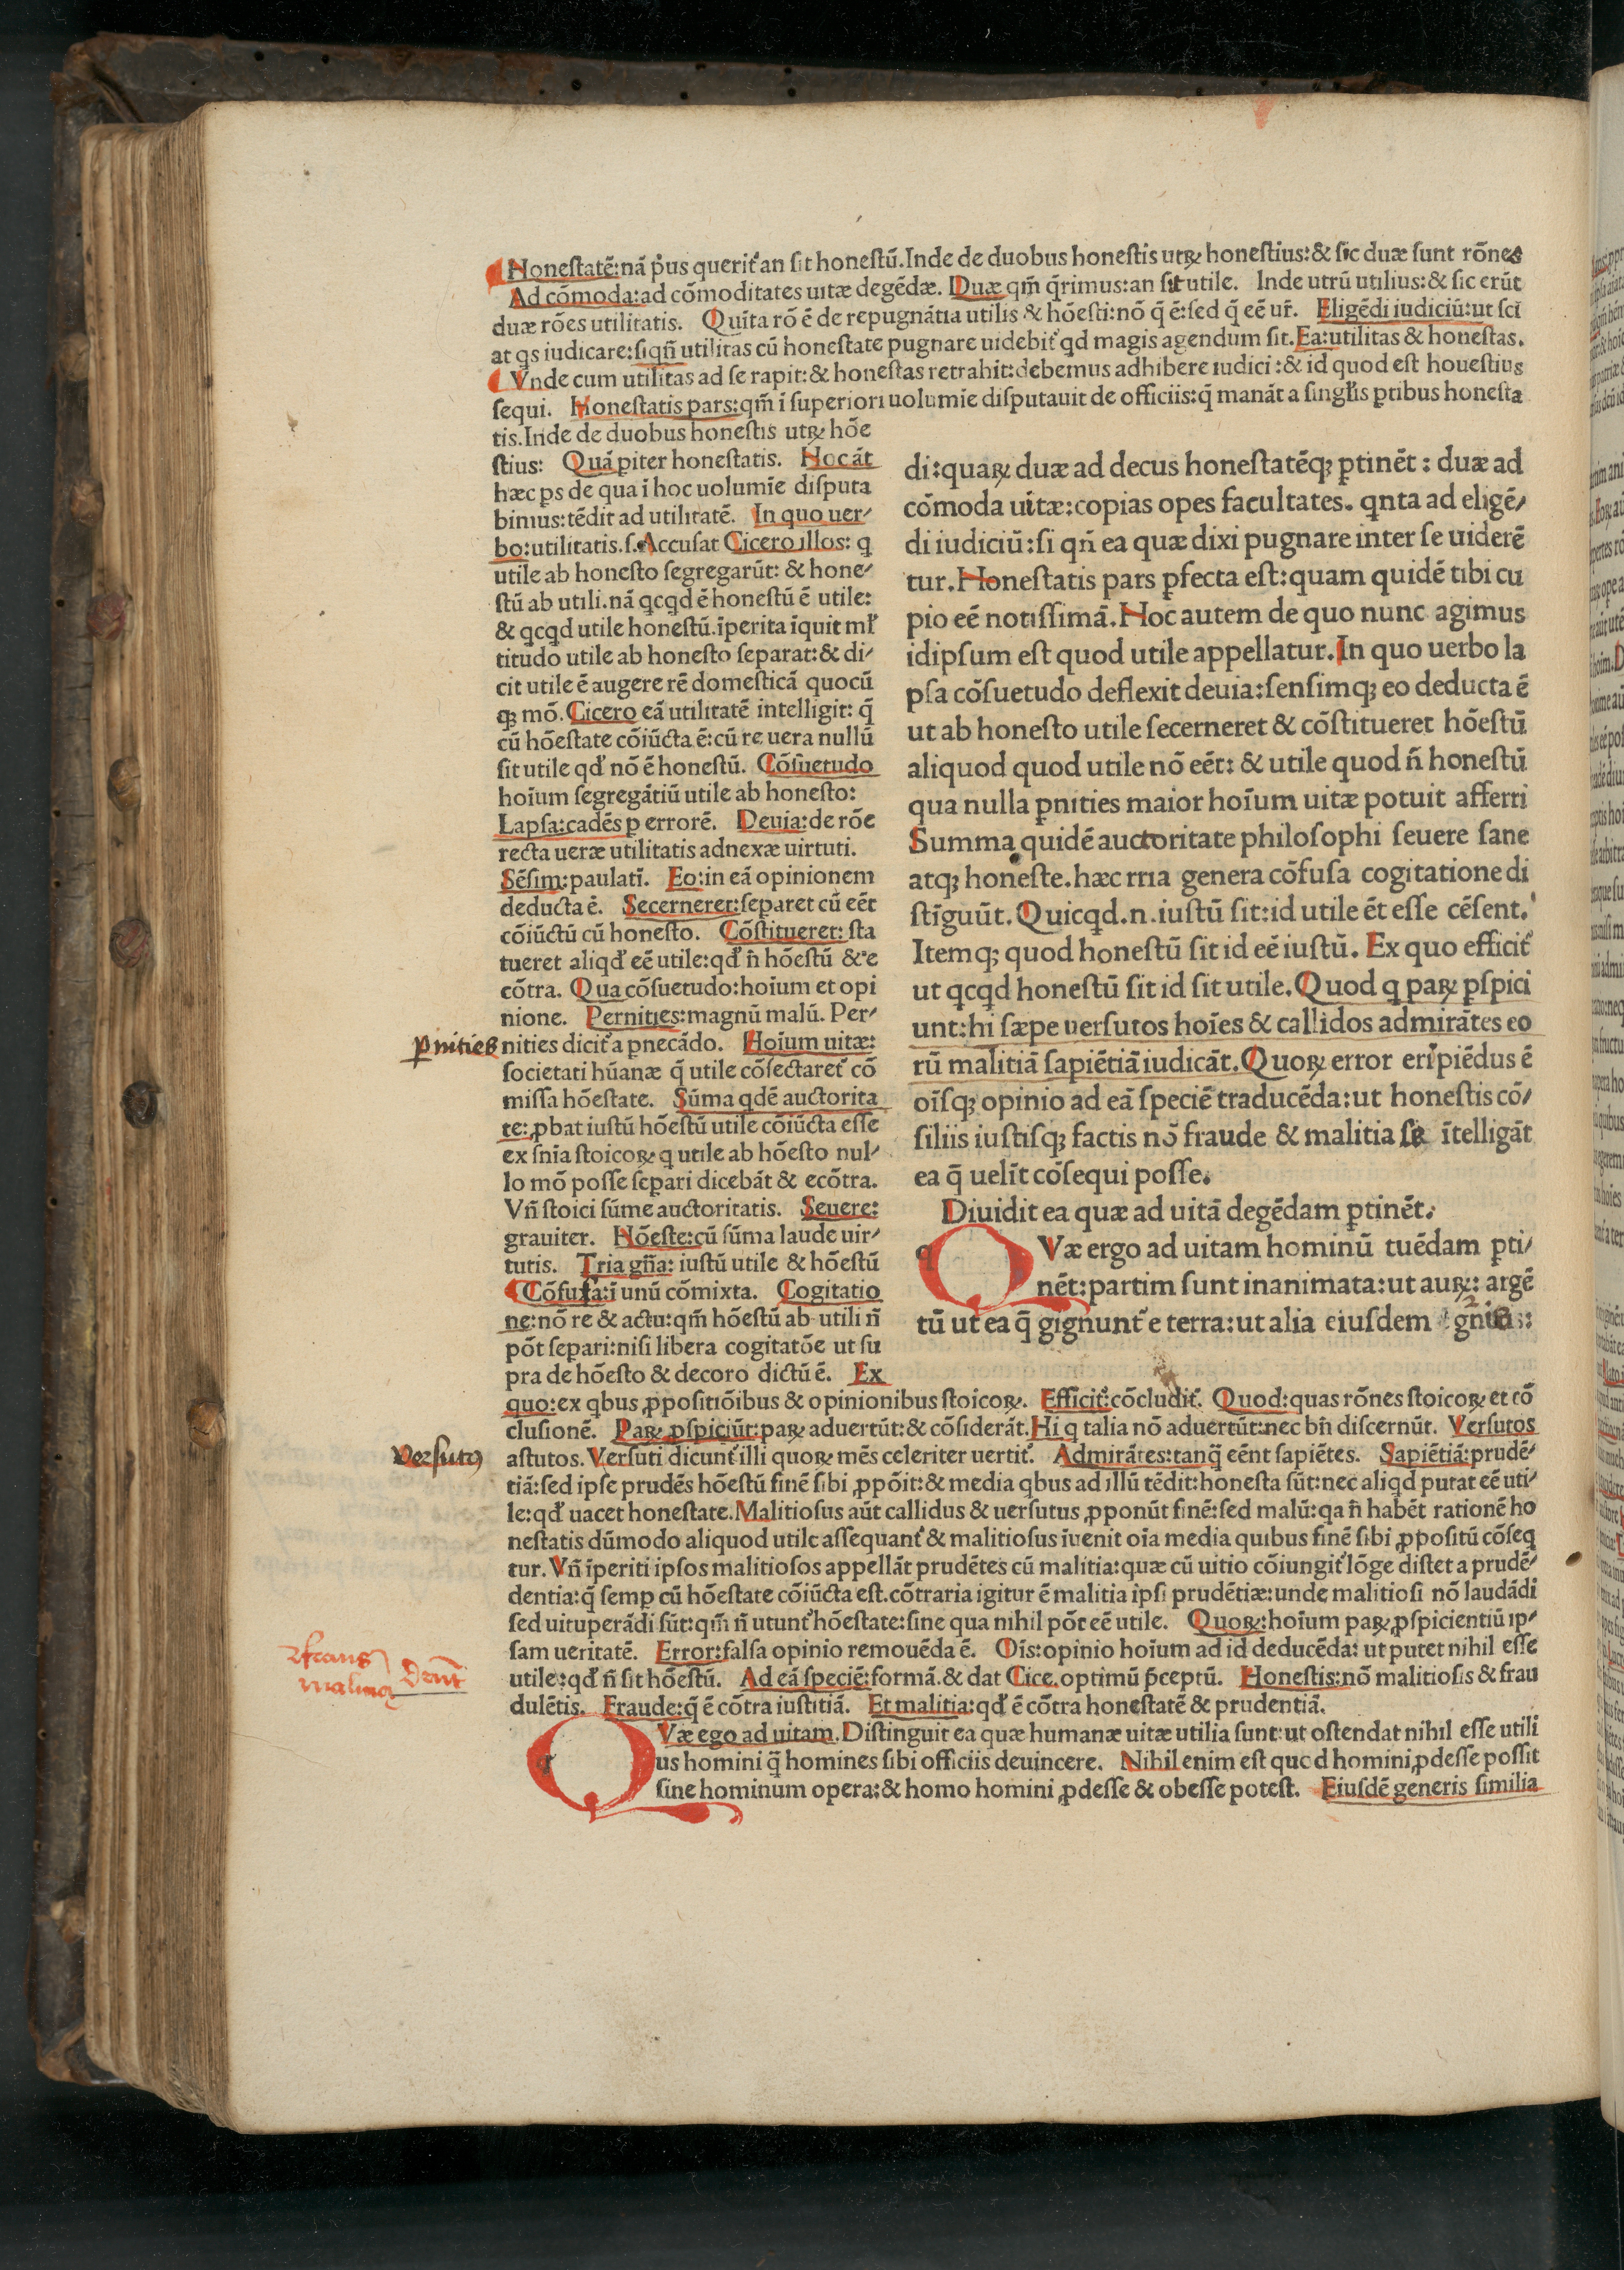 Honeſtatē:nā p̄us querit᷑ an ſit honeſtū.Inde de duobus honeſtis utꝝ honeſtius:& ſic duæ ſunt rōnes
Ad cōmoda:ad cōmoditates uitæ degēdæ. Duæ qm̄ q̄rimus:an ſit utile. Inde utrū utilius:& ſic erūt
duæ rōes utilitatis. Quīta rō ē de repugnātia utilis & hōeſti:nō q̄ ē:ſed q̄ eē ur̄. Eligēdi iudiciū:ut ſci
at qs iudicare:ſiqn̄ utilitas cū honeſtate pugnare uidebit᷑ qd magis agendum ſit.Ea:utilitas & honeſtas.
Vnde cum utilitas ad ſe rapit:& honeſtas retrahit:debemus adhibere iudici :& id quod eſt houeſtius
ſequi. Honeſtatis pars:qm̄ ī ſuperiori uolumīe diſputauit de officiis:q̄ manāt a ſingl̄is ꝑtibus honeſta
tis.Inde de duobus honeſtis utꝝ hōe
ſtius: Quā ꝑiter honeſtatis. Hoc āt
hæc ps de qua ī hoc uolumīe diſputa
binius:tēdit ad utilitatē. In quo uer⸗
bo:utilitatis.ſ.Accuſat Cicero illos: q
utile ab honeſto ſegregarūt: & hone⸗
ſtū ab utili.nā qcqd ē honeſtū ē utile:
& qcqd utile honeſtū.īperita īquit ml̄
titudo utile ab honeſto ſeparat:& di⸗
cit utile ē augere rē domeſticā quocū
qꝫ mō.Cicero eā utilitatē intelligit: q̄
cū hōeſtate cōiūcta ē:cū re uera nullū
ſit utile qd̄ nō ē honeſtū. Cōſuetudo
hoīum ſegregātiū utile ab honeſto:
Lapſa:cadēs ꝑ errorē. Deuia:de rōe
recta ueræ utilitatis adnexæ uirtuti.
Sēſim:paulatī. Eo:in eā opinionem
deducta ē. Secerneret:ſeparet cū eēt
cōiūctū cū honeſto. Cōſtitueret: ſta
tueret aliqd̄ eē utile:qd̄ n̄ hōeſtū & e
cōtra. Qua cōſuetudo:hoīum et opi
nione. Pernities:magnū malū. Per⸗
ꝑnities
nities dicit᷑ a ꝑnecādo. Hoīum uitæ:
ſocietati hūanæ q̄ utile cōſectaret᷑ cō
miſſa hōeſtate. Sūma qdē auctorita
te:ꝓbat iuſtū hōeſtū utile cōiūcta eſſe
ex ſn̄ia ſtoicoꝝ q utile ab hōeſto nul⸗
lo mō poſſe ſeꝑari dicebāt & ecōtra.
Vn̄ ſtoici ſūme auctoritatis. Seuere:
grauiter. Hōeſte:cū ſūma laude uir⸗
tutis. Tria gn̄a: iuſtū utile & hōeſtū
Cōfuſa:ī unū cōmixta. Cogitatio
ne:nō re & actu:qm̄ hōeſtū ab utili n̄
pōt ſepari:niſi libera cogitatōe ut ſu
pra de hōeſto & decoro dictū ē. Ex
di:quaꝝ duæ ad decus honeſtatēqꝫ ꝑtinēt : duæ ad
cōmoda uitæ:copias opes facultates. qnta ad eligē⸗
di iudiciū:ſi qn̄ ea quæ dixi pugnare inter ſe uiderē
tur.Honeſtatis pars ꝑfecta eſt:quam quidē tibi cu
pio eē notiſſimā.Hoc autem de quo nunc agimus
idipſum eſt quod utile appellatur.In quo uerbo la
pſa cōſuetudo deflexit deuia:ſenſimqꝫ eo deducta ē
ut ab honeſto utile ſecerneret & cōſtitueret hōeſtū
aliquod quod utile nō eēt: & utile quod n̄ honeſtū
qua nulla ꝑnities maior hoīum uitæ potuit afferri
Summa quidē auctoritate philoſophi ſeuere ſane
atqꝫ honeſte.hæc rria genera cōfuſa cogitatione di
ſtīguūt.Quicqd.n.iuſtū ſit:id utile ēt eſſe cēſent.
Itemqꝫ quod honeſtū ſit id eē iuſtū. Ex quo efficit᷑
ut qcqd honeſtū ſit id ſit utile.Quod q paꝝ ꝑſpici
unt:hi ſæpe uerſutos hoīes & callidos admirātes eo
rū malitiā ſapiētiā iudicāt.Quoꝝ error eripiēdus ē
oīſqꝫ opinio ad eā ſpeciē traducēda:ut honeſtis cō⸗
ſiliis iuſtiſqꝫ factis nō fraude & malitia ſe ītelligāt
ea q̄ uelīt cōſequi poſſe.
Diuidit ea quæ ad uitā degēdam ꝑtinēt.
QVæ ergo ad uitam hominū tuēdam ꝑti⸗
nēt:partim ſunt inanimata:ut auꝝ: argē
tū ut ea q̄ gignunt᷑ e terra:ut alia eiuſdem gn̄is:
quo:ex qbus ꝓpoſitiōibus & opinionibus ſtoicoꝝ. Efficit᷑:cōcludit᷑. Quod:quas rōnes ſtoicoꝝ et cō
cluſionē. Paꝝ ꝑſpiciūt:paꝝ aduertūt:& cōſiderāt.Hi q talia nō aduertūt:nec bn̄ diſcernūt. Verſutos
verſutꝯ
aſtutos.Verſuti dicunt᷑ illi quoꝝ mēs celeriter uertit᷑. Admirātes:tanq̄ eēnt ſapiētes. Sapiētiā:prudē⸗
tiā:ſed ipſe prudēs hōeſtū finē ſibi ꝓpōit:& media qbus ad illū tēdit:honeſta ſūt:nec aliqd putat eē uti⸗
le:qd̄ uacet honeſtate.Malitioſus aūt callidus & uerſutus ꝓponūt finē:ſed malū:qa n̄ habēt rationē ho
neſtatis dūmodo aliquod utile aſſequant᷑ & malitioſus īuenit oīa media quibus finē ſibi ꝓpoſitū cōſeq
tur.Vn̄ īperiti ipſos malitioſos appellāt prudētes cū malitia:quæ cū uitio cōiungit᷑ lōge diſtet a prudē⸗
dentia:q̄ ſemꝑ cū hōeſtate cōiūcta eſt.cōtraria igitur ē malitia ipſi prudētiæ:unde malitioſi nō laudādi
ſed uituperādi ſūt:qm̄ n̄ utunt᷑ hōeſtate:ſine qua nihil pōt eē utile. Quoꝝ:hoīum paꝝ ꝑſpicientiū ip⸗
ſam ueritatē. Error:falſa opinio remouēda ē. Oīs:opinio hoīum ad id deducēda: ut putet nihil eſſe
utile:qd̄ n̄ ſit hōeſtū. Ad eā ſpeciē:formā.& dat Cice.optimū p̄ceptū. Honeſtis:nō malitioſis & frau
dulētis. Fraude:q̄ ē cōtra iuſtitiā. Et malitia:qd̄ ē cōtra honeſtatē & prudentiā.
QVæ ego ad uitam.Diſtinguit ea quæ humanæ uitæ utilia ſunt:ut oſtendat nihil eſſe utili
us homini q̄ homines ſibi officiis deuincere. Nihil enim eſt quod homini ꝓdeſſe poſſit
ſine hominum opera:& homo homini ꝓdeſſe & obeſſe poteſt. Eiuſdē generis ſimilia